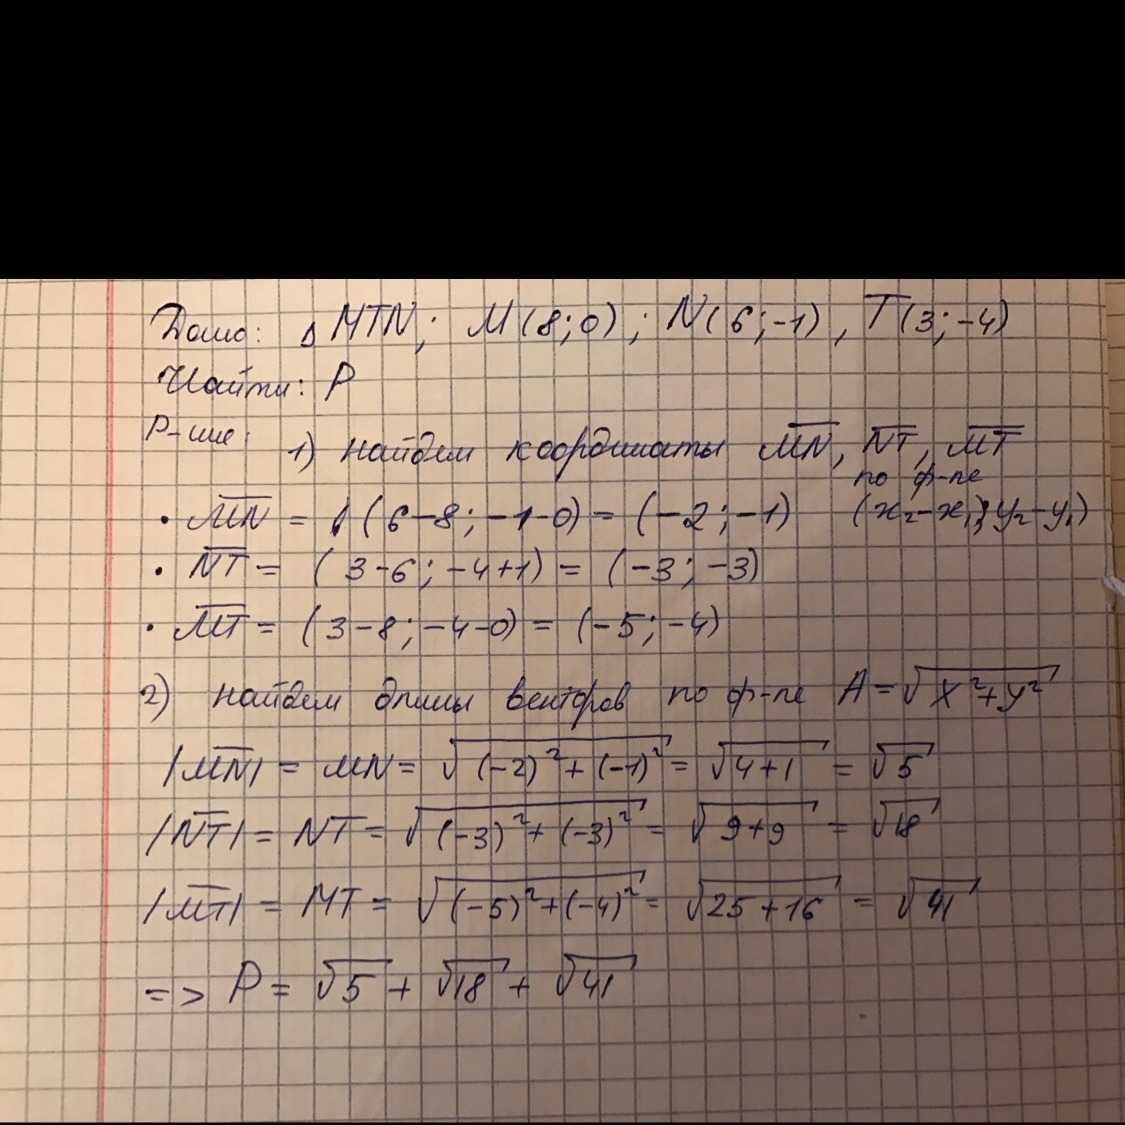 Дано: △ MTN; M(8;0); N(6;-1), T(3;-4)
Найти: P
Р-ние: 1) найдем координаты M̅N̅, N̅T̅, M̅T̅
по ф-ле
• M̅N̅ = (6-8; -1-0) = (-2; -1) (x₂-x₁; y₂-y₁)
• N̅T̅ = (3-6; -4+1) = (-3; -3)
• M̅T̅ = (3-8; -4-0) = (-5; -4)
2) найдем длины векторов по ф-ле A = √(x²+y²)
|M̅N̅| = MN = √((-2)²+(-1)²) = √(4+1) = √5
|N̅T̅| = NT = √((-3)²+(-3)²) = √(9+9) = √18
|M̅T̅| = MT = √((-5)²+(-4)²) = √(25+16) = √41
=> P = √5 + √18 + √41